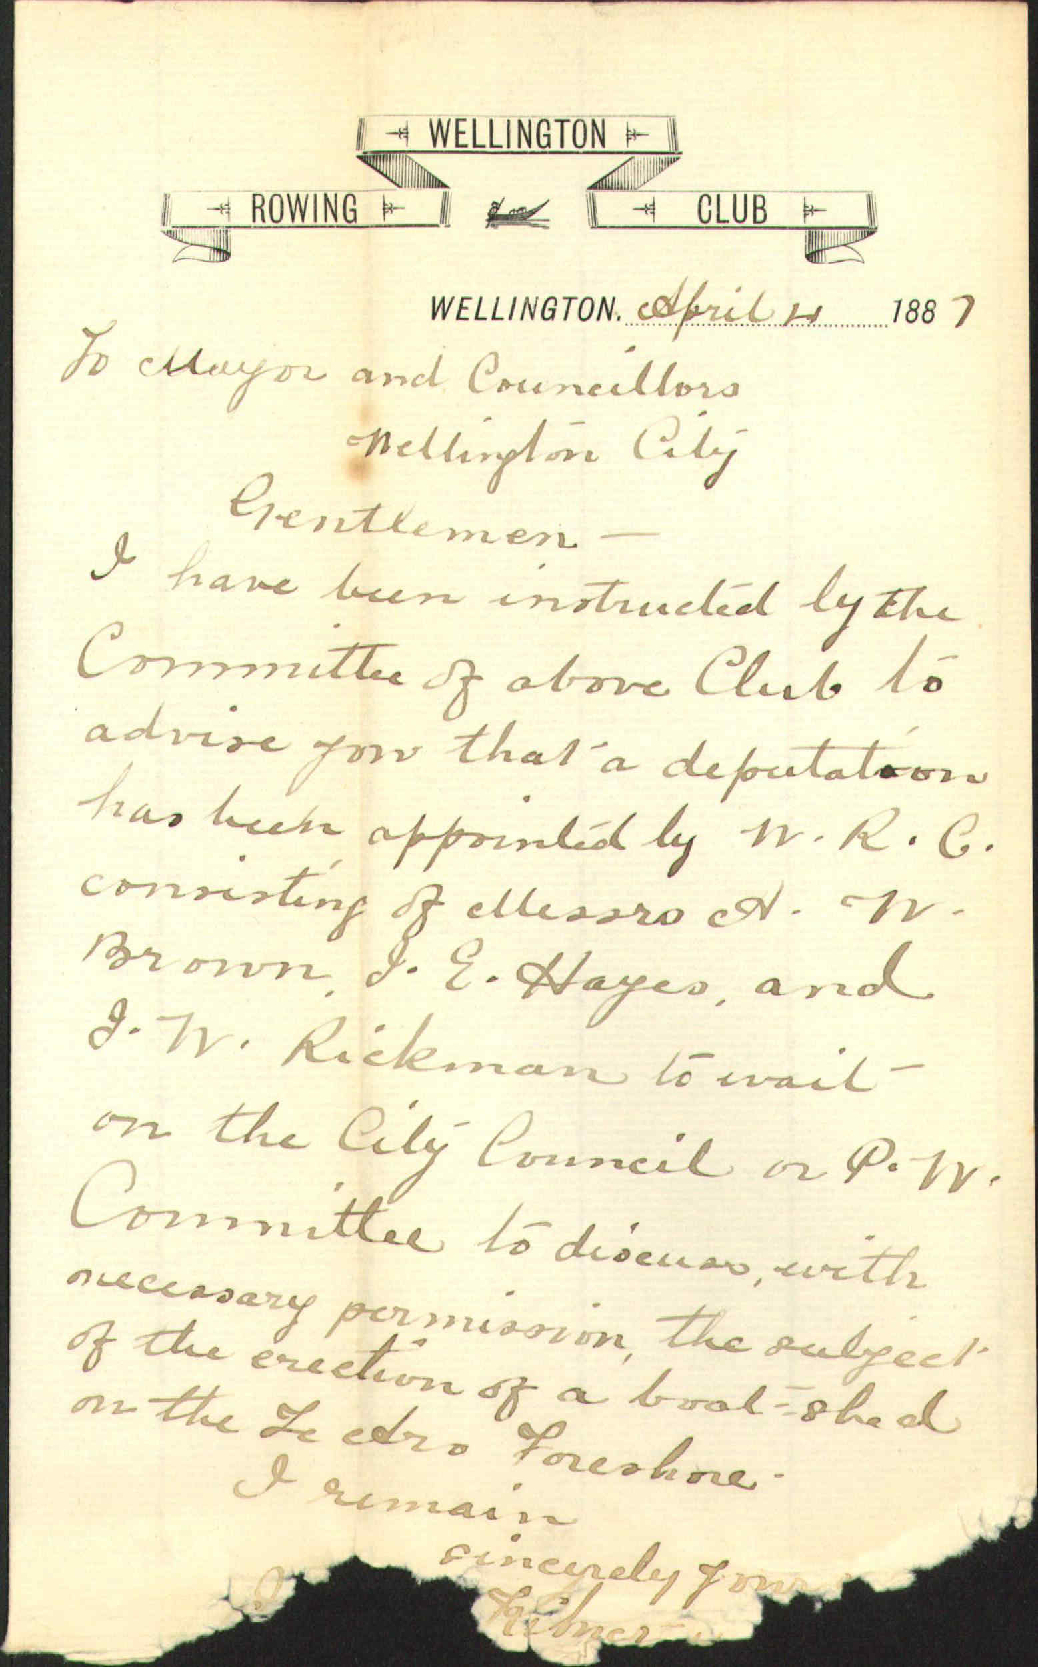 WELLINGTON
ROWING CLUB
WELLINGTON. April 4 1887
To Mayor and Councillors
Wellington City
Gentlemen —
I have been instructed by the
Committee of above Club to
advise you that a deputation
has been appointed by W. R. C.
consisting of Messrs A. W.
Brown, J. E. Hayes, and
J. W. Rickman to wait
on the City Council or P. W.
Committee to discuss, with
necessary permission, the subject
of the erection of a boat-shed
on the Te Aro Foreshore.
I remain
sincerely your